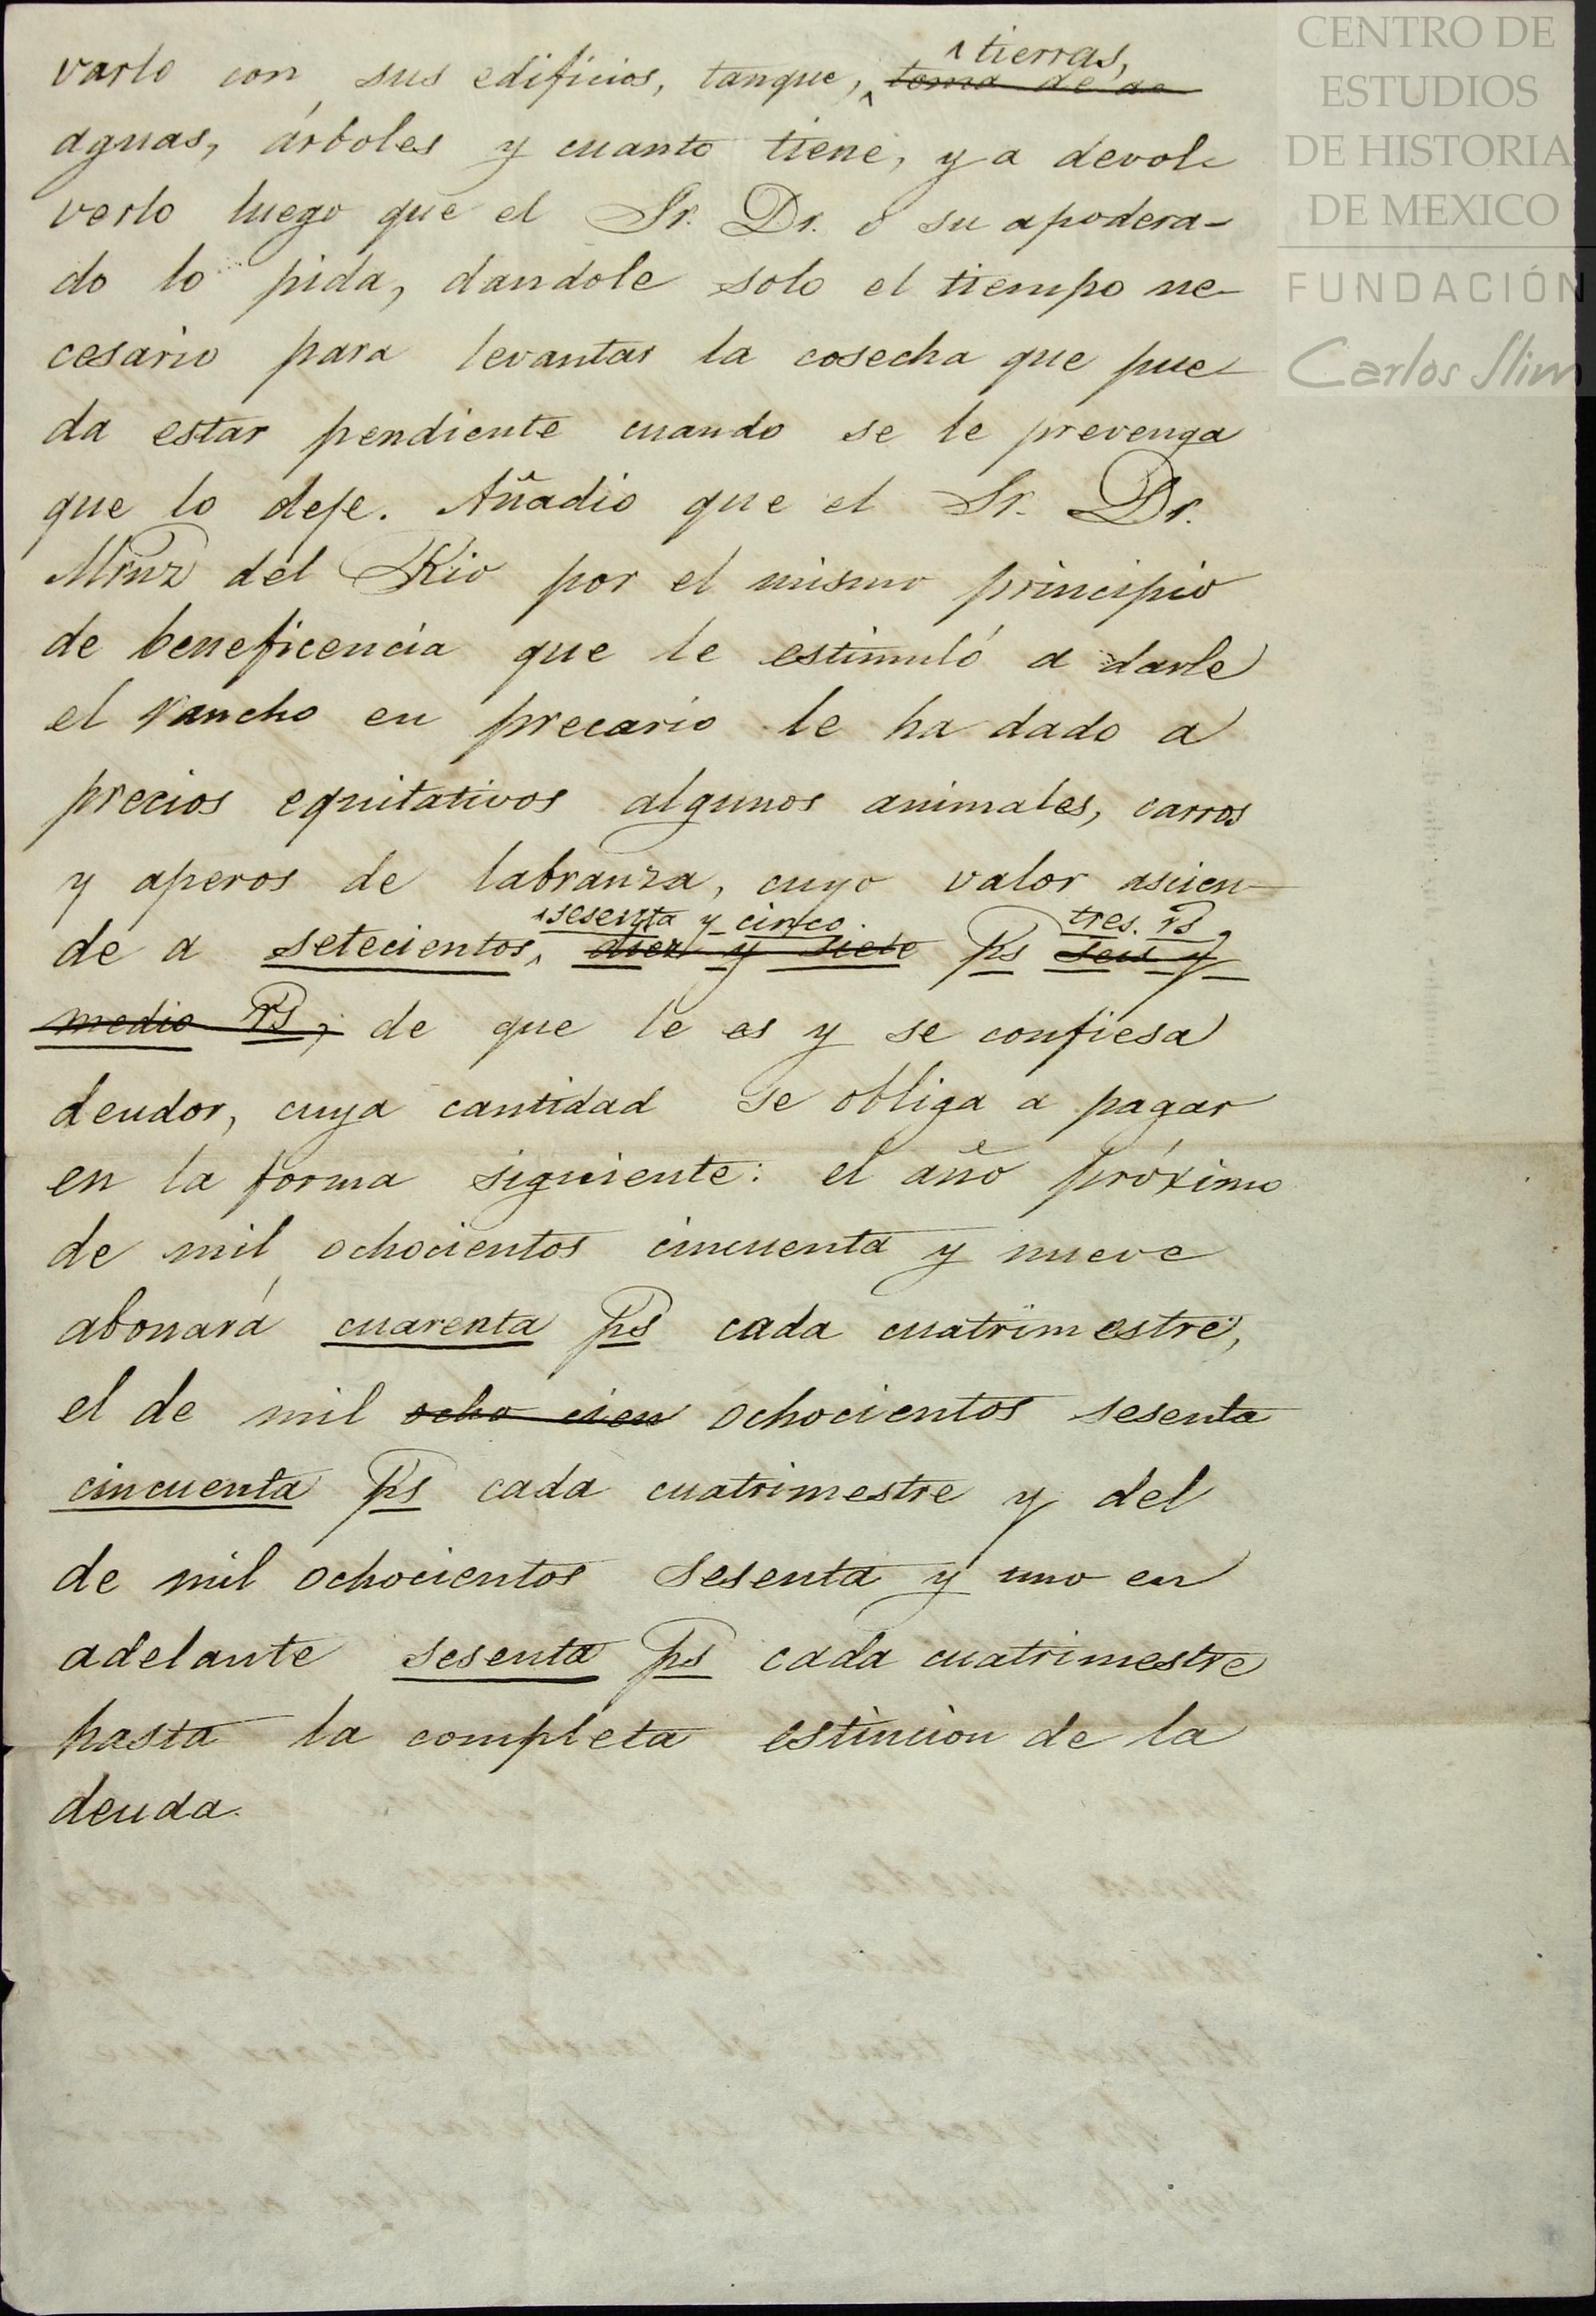 tierras,
varlo con sus edificios, tanque, toma de a
aguas, árboles y cuanto tiene, y a devol-
verlo luego que el Sr. Dr. o su apodera-
do lo pida, dandole solo el tiempo ne-
cesario para levantar la cosecha que pue-
da estar pendiente cuando se le prevenga
que lo deje. Añadio que el Sr. Dr.
del Rio por el mismo principio
de beneficencia que le estimuló a darle
el rancho en precario le ha dado a
precios equitativos algunos animales, carros
y aperos de labranza, cuyo valor ascien-
sesenta y cinco. tres. rs
de a setecientos, diez y siete ps seis y
medio rs, de que le es y se confiesa
deudor, cuya cantidad se obliga a pagar
en la forma siguiente: el año próximo
de mil ochocientos cincuenta y nueve
abonará cuarenta ps cada cuatrimestre,
el de mil ocho cien ochocientos sesenta
cincuenta ps cada cuatrimestre y del
de mil ochocientos sesenta y uno en
adelante sesenta ps cada cuatrimestre
hasta la completa estincion de la
deuda.
CENTRO DE
ESTUDIOS
DE HISTORIA
DE MEXICO
FUNDACIÓN
Carlos Slim